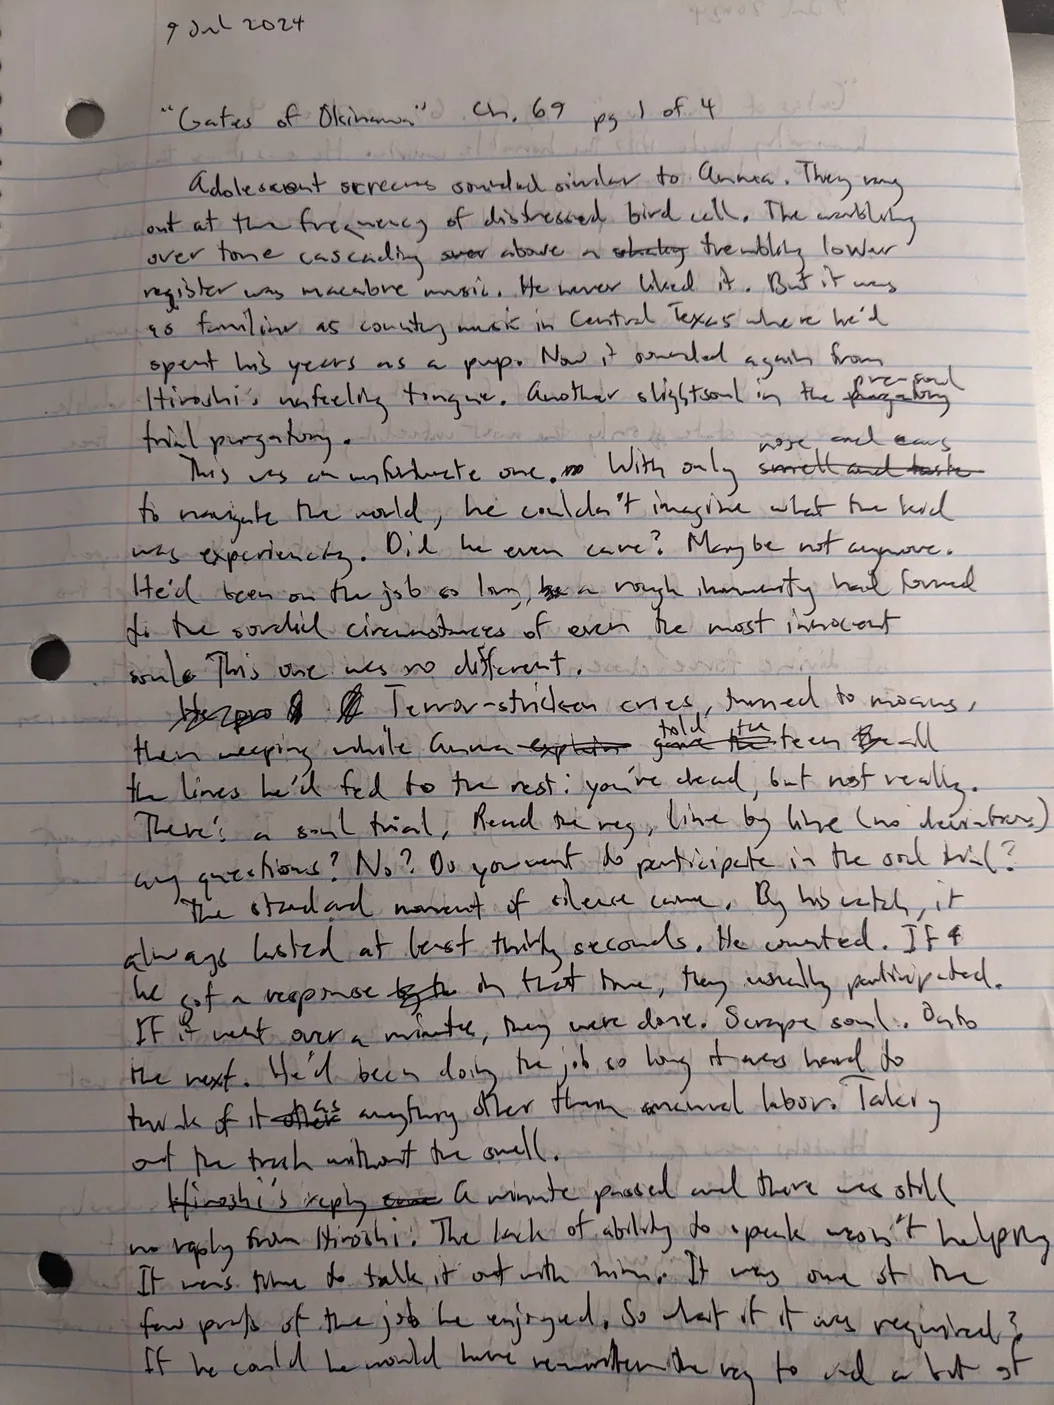 9 Jul 2024
"Gates of Okinawa" Ch. 69 pg 1 of 4
Adolescent screams sounded similar to Anma. They rang
out at the frequency of distressed bird call. The warbling
over tone cascading over above a shaky trembling lower
register was macabre music. He never liked it. But it was
as familiar as country music in Central Texas where he'd
spent his years as a pup. Now it sounded again from
Hiroshi's unfeeling tongue. Another slightsoul in the purgatory pre-soul
trial purgatory.
This was an unfortunate one. With only smell and taste nose and ears
to navigate the world, he couldn't imagine what the kid
was experiencing. Did he even care? Maybe not anymore.
He'd been on the job so long, a rough immunity had formed
to the sordid circumstances of even the most innocent
souls. This one was no different.
Terror-stricken cries, turned to moans,
then weeping while Anma explain gave the told the teen all
the lines he'd fed to the rest: you're dead, but not really.
There's a soul trial, Read the reg, line by line (no deviations)
any questions? No? Do you want to participate in the soul trial?
The standard moment of silence came. By his watch, it
always lasted at least thirty seconds. He counted. If
he got a response in that time, they usually participated.
If it went over a minute, they were done. Scrape soul. Onto
the next. He'd been doing the job so long it was hard to
think of it other as anything other than manual labor. Taking
out the trash without the smell.
Hiroshi's reply came A minute passed and there was still
no reply from Hiroshi. The lack of ability to speak wasn't helping
It was time to talk it out with him. It was one of the
few parts of the job he enjoyed. So what if it was required?
If he could he would have rewritten the reg to add a bit of